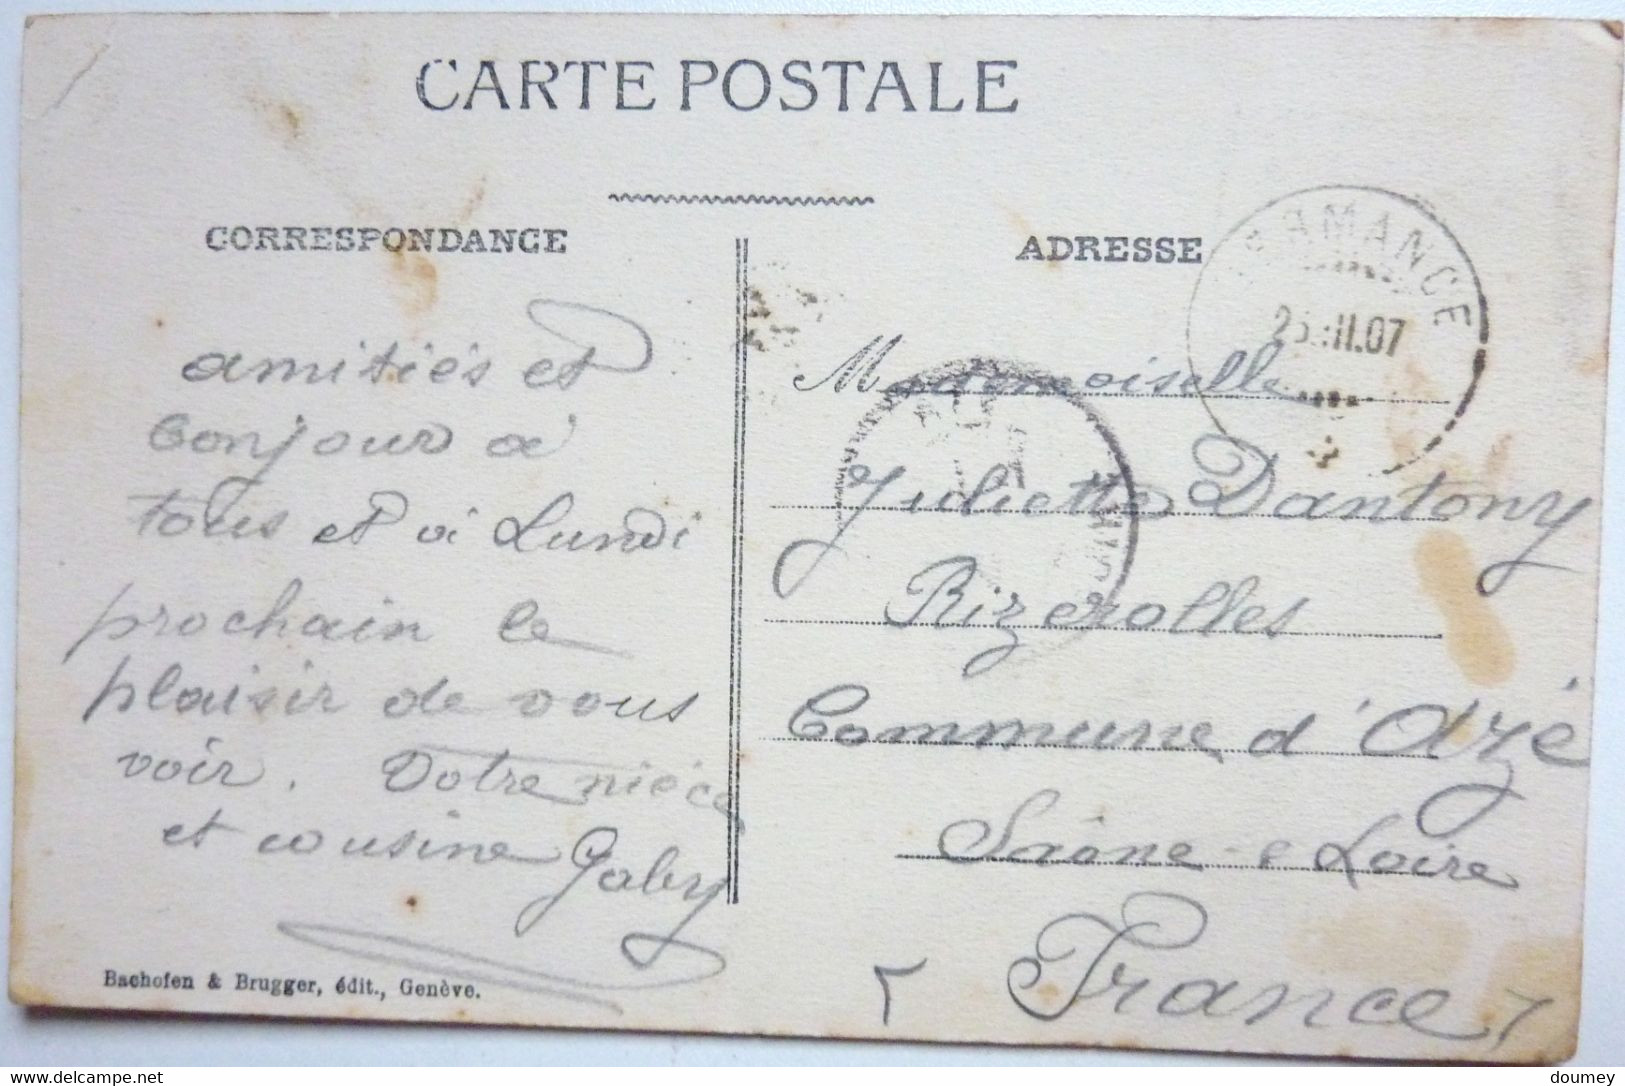 CARTE POSTALE
CORRESPONDANCE
amitiés et
bonjour à
tous et à Lundi
prochain le
plaisir de vous
voir. Votre nièce
et cousine Gaby
Bachofen & Brugger, édit., Genève.
ADRESSE
AMANCE
II.07
Mademoiselle
Juliette Dantony
Rizerolles
Commune d'Azé
Saône-e Loire
France
www.delcampe.net
doumey